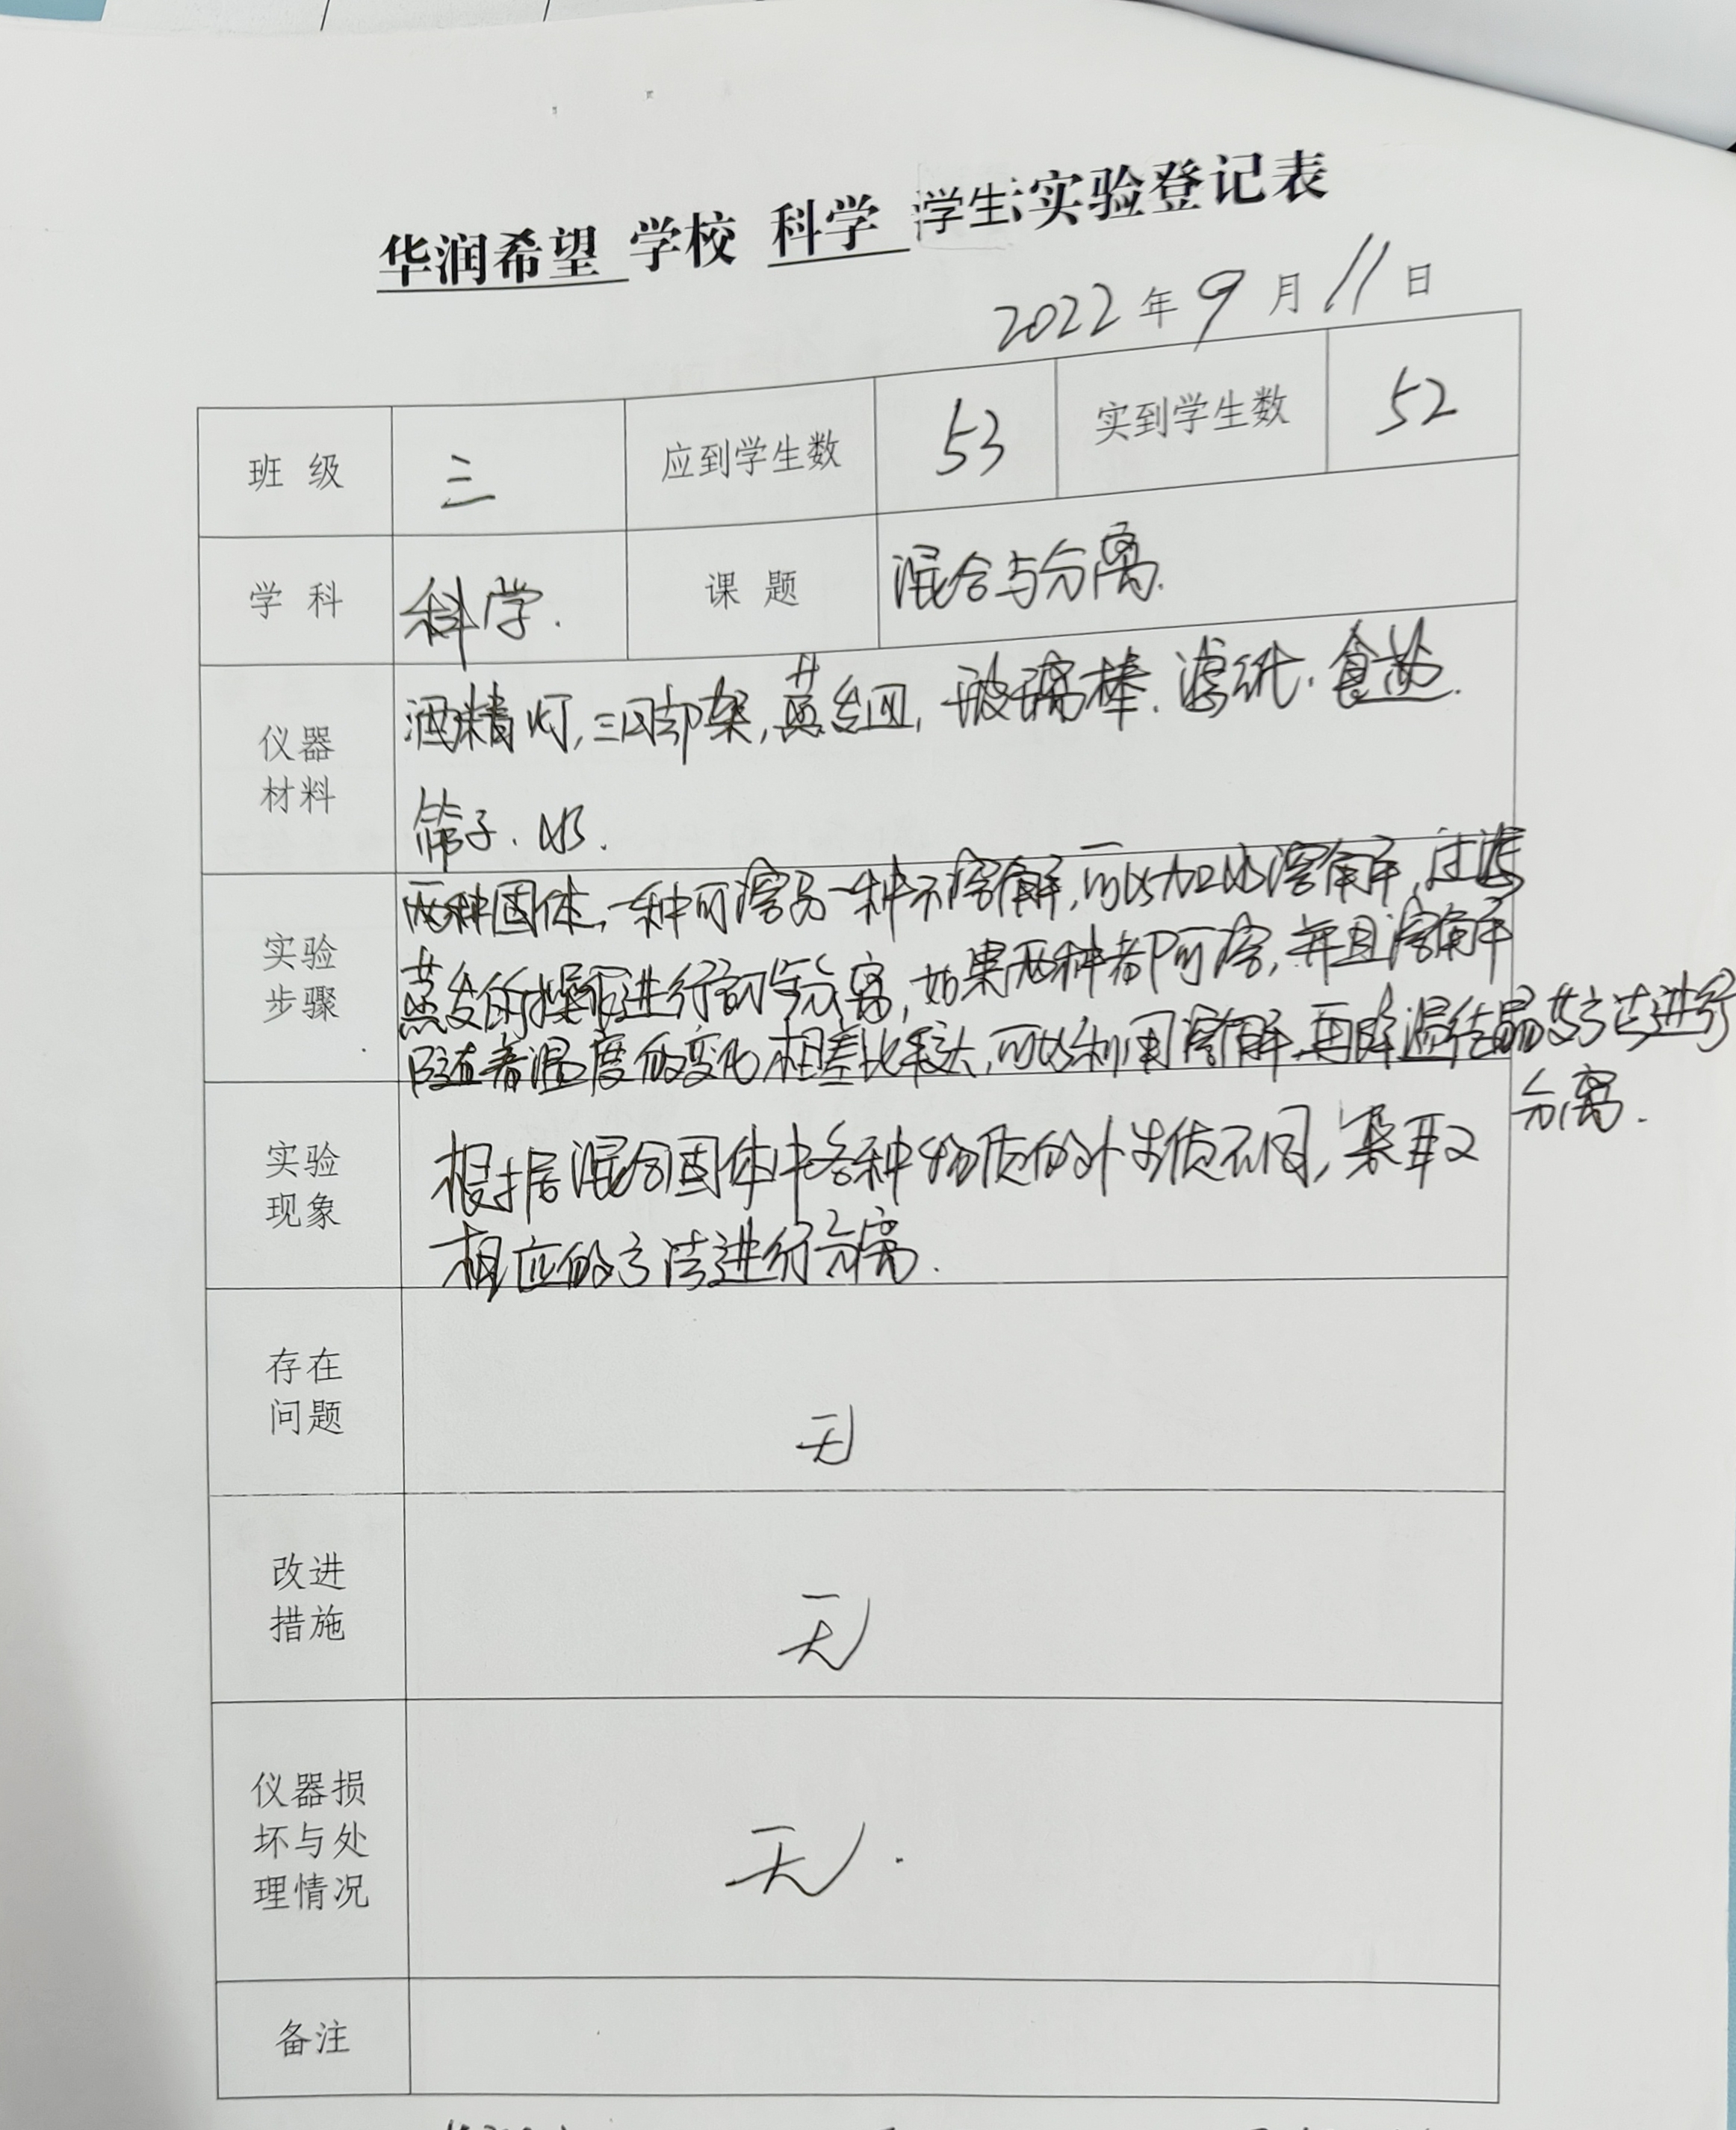 华润希望 学校 科学 学生实验登记表
2022 年 9 月 11 日
班 级 三 应到学生数 53 实到学生数 52
学 科 科学. 课 题 混合与分离.
仪器
材料
酒精灯,三脚架,蒸发皿,玻璃棒.滤纸.食盐.
筛子.水.
实验
步骤
两种固体,一种可溶另一种不溶解,可以加水溶解,过滤
蒸发的操作进行分离,如果两种都可溶,并且溶解
随着温度的变化相差比较大,可以利用溶解,再降温结晶方法进行
分离.
实验
现象
根据混合固体中各种物质的性质不同,采取
相应的方法进行分离.
存在
问题
无
改进
措施
无
仪器损
坏与处
理情况
无.
备注